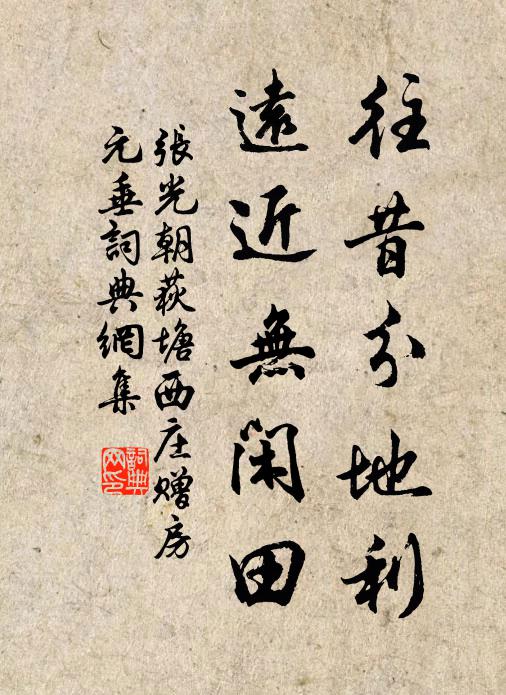 往昔分地利
遠近無閑田
張光朝荻塘西庄赠房
元垂詞典網集
詞典网印